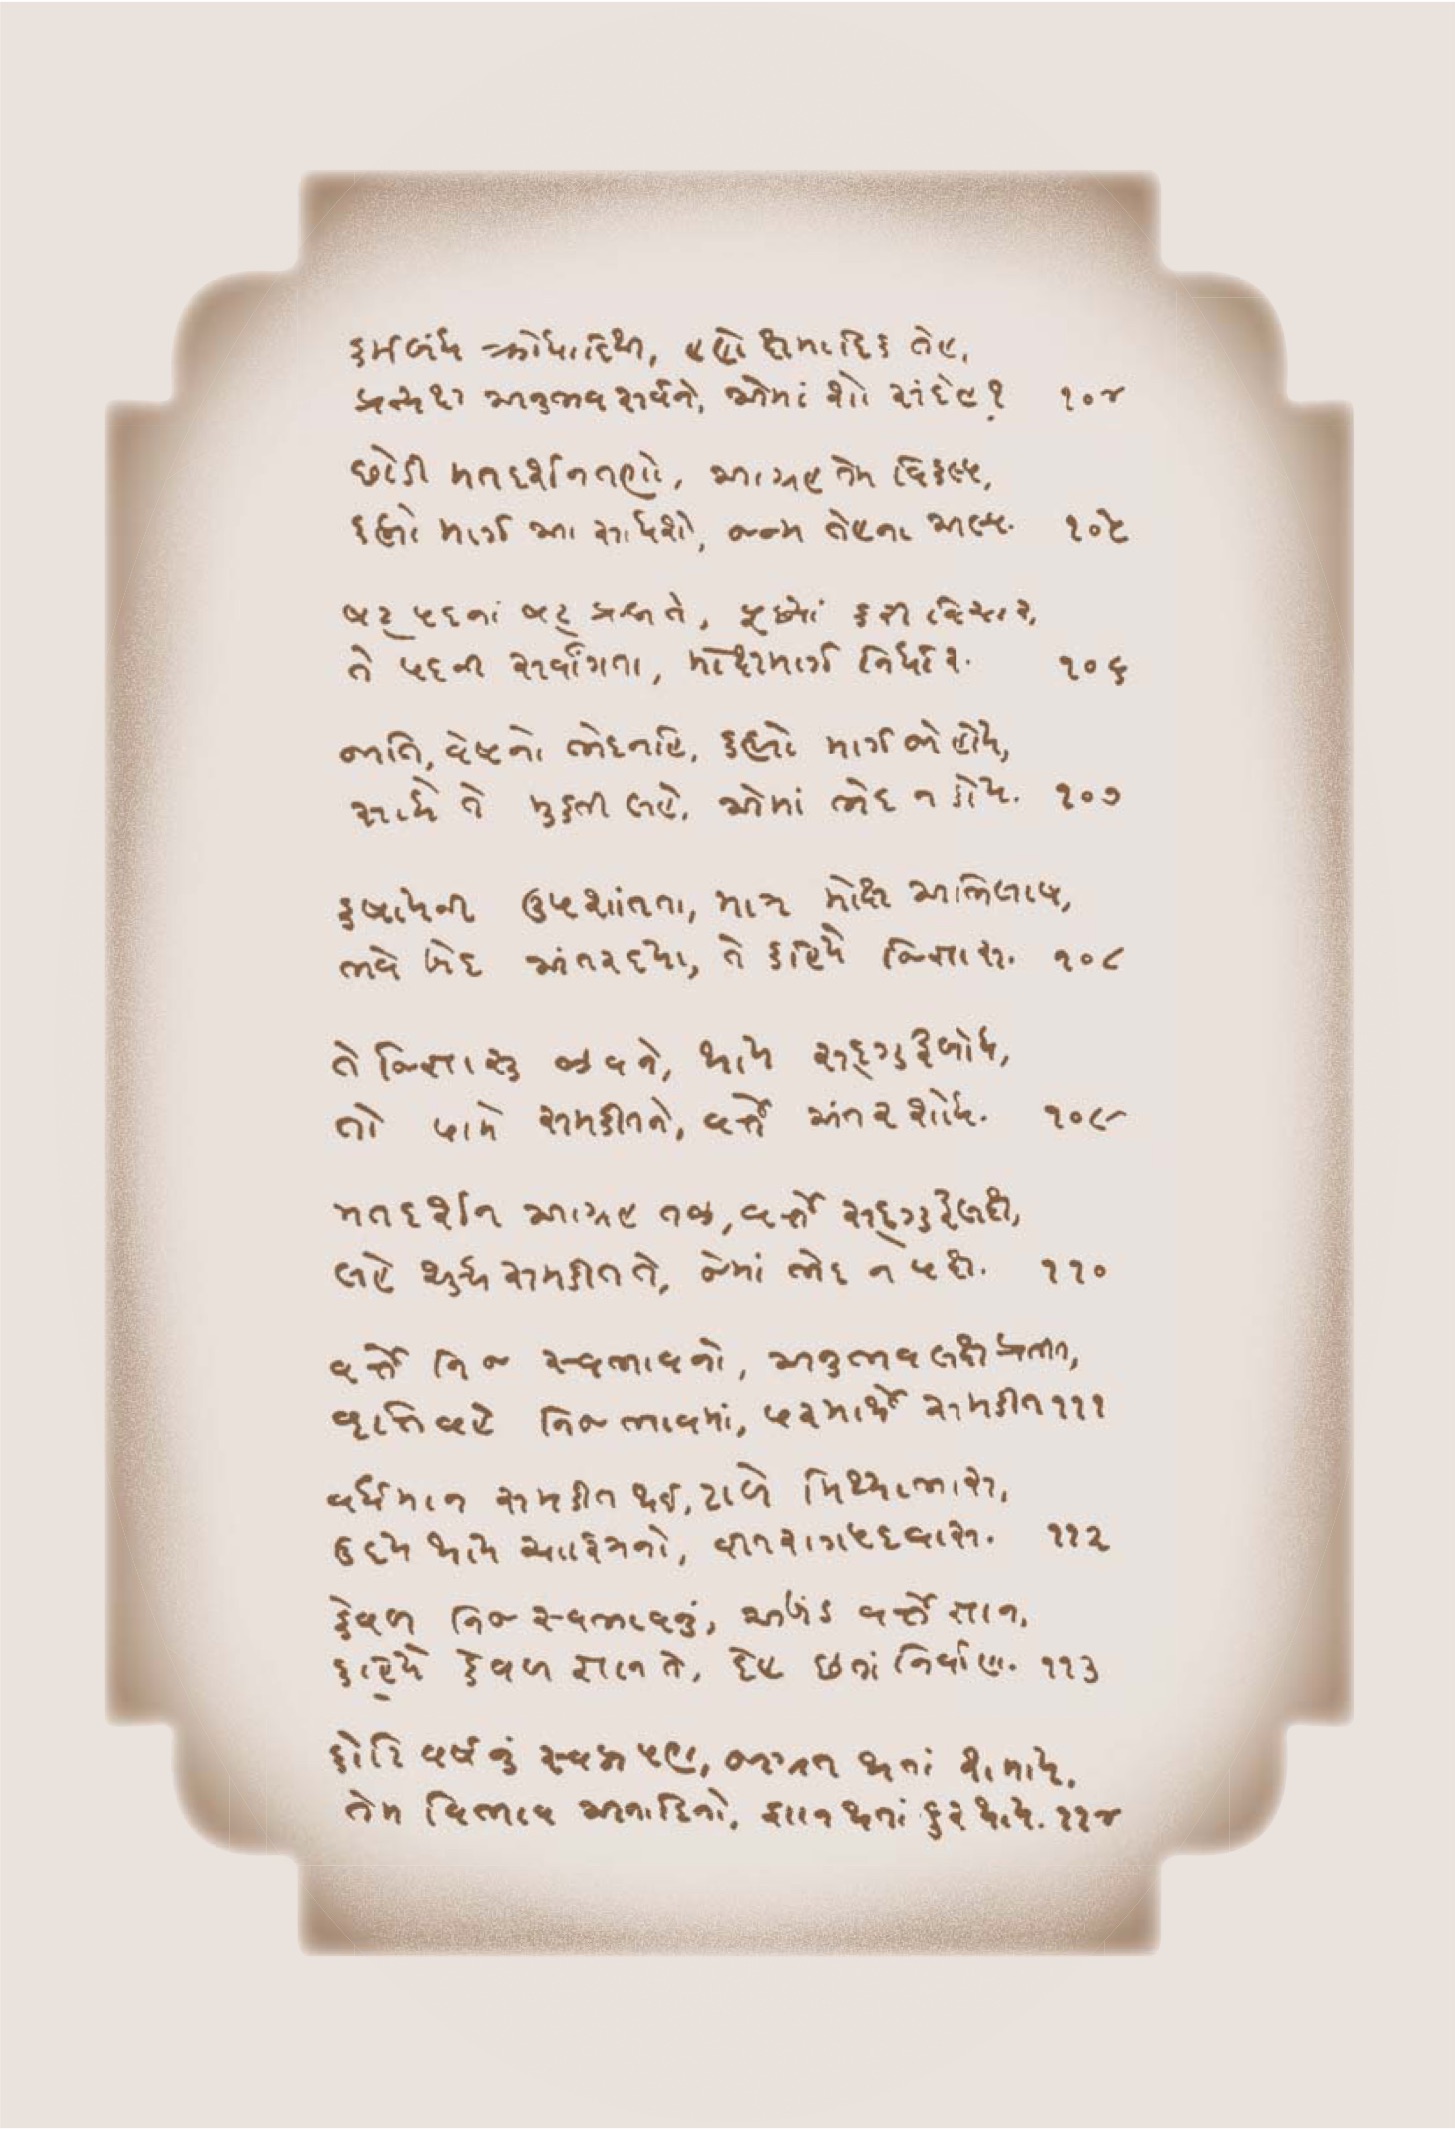 કર્મબંધ ક્રોધાદિથી, હણે ક્ષમાદિક તેહ,
પ્રત્યક્ષ અનુભવ સર્વને, એમાં શો સંદેહ? ૧૦૪
છોડી મતદર્શનતણો, આગ્રહ તેમ વિકલ્પ,
કહ્યો માર્ગ આ સાધશે, જન્મ તેહના અલ્પ. ૧૦૫
ષટ્ પદનાં ષટ્ પ્રશ્ન તે, પૂછ્યાં કરી વિચાર,
તે પદની સર્વાંગતા, મોક્ષમાર્ગ નિર્ધાર. ૧૦૬
જાતિ, વેષનો ભેદ નહિ, કહ્યો માર્ગ જો હોય,
સાધે તે મુક્તી લહે, એમાં ભેદ ન કોય. ૧૦૭
કષાયની ઉપશાંતતા, માત્ર મોક્ષ અભિલાષ,
ભવે ખેદ અંતર દયા, તે કહિયે જિજ્ઞાસ. ૧૦૮
તે જિજ્ઞાસુ જીવને, થાય સદ્ગુરુબોધ,
તો પામે સમકીતને, વર્ત્તે અંતરશોધ. ૧૦૯
મતદર્શન આગ્રહ તજી, વર્ત્તે સદ્ગુરુલક્ષ,
લહે શુદ્ધ સમકીત તે, જેમાં ભેદ ન પક્ષ. ૧૧૦
વર્ત્તે નિજ સ્વભાવનો, અનુભવ લક્ષ પ્રતીત,
વૃત્તિ વહે નિજભાવમાં, પરમાર્થે સમકીત ૧૧૧
વર્ધમાન સમકીત થઈ, ટાળે મિથ્યાભાસ,
ઉદય થાય ચારિત્રનો, વીતરાગપદ વાસ. ૧૧૨
કેવળ નિજ સ્વભાવનું, અખંડ વર્ત્તે જ્ઞાન,
કહિયે કેવળજ્ઞાન તે, દેહ છતાં નિર્વાણ. ૧૧૩
કોટિ વર્ષનું સ્વપ્ન પણ, જાગ્રત થતાં શમાય,
તેમ વિભાવ અનાદિનો, જ્ઞાન થતાં દુર થાય. ૧૧૪